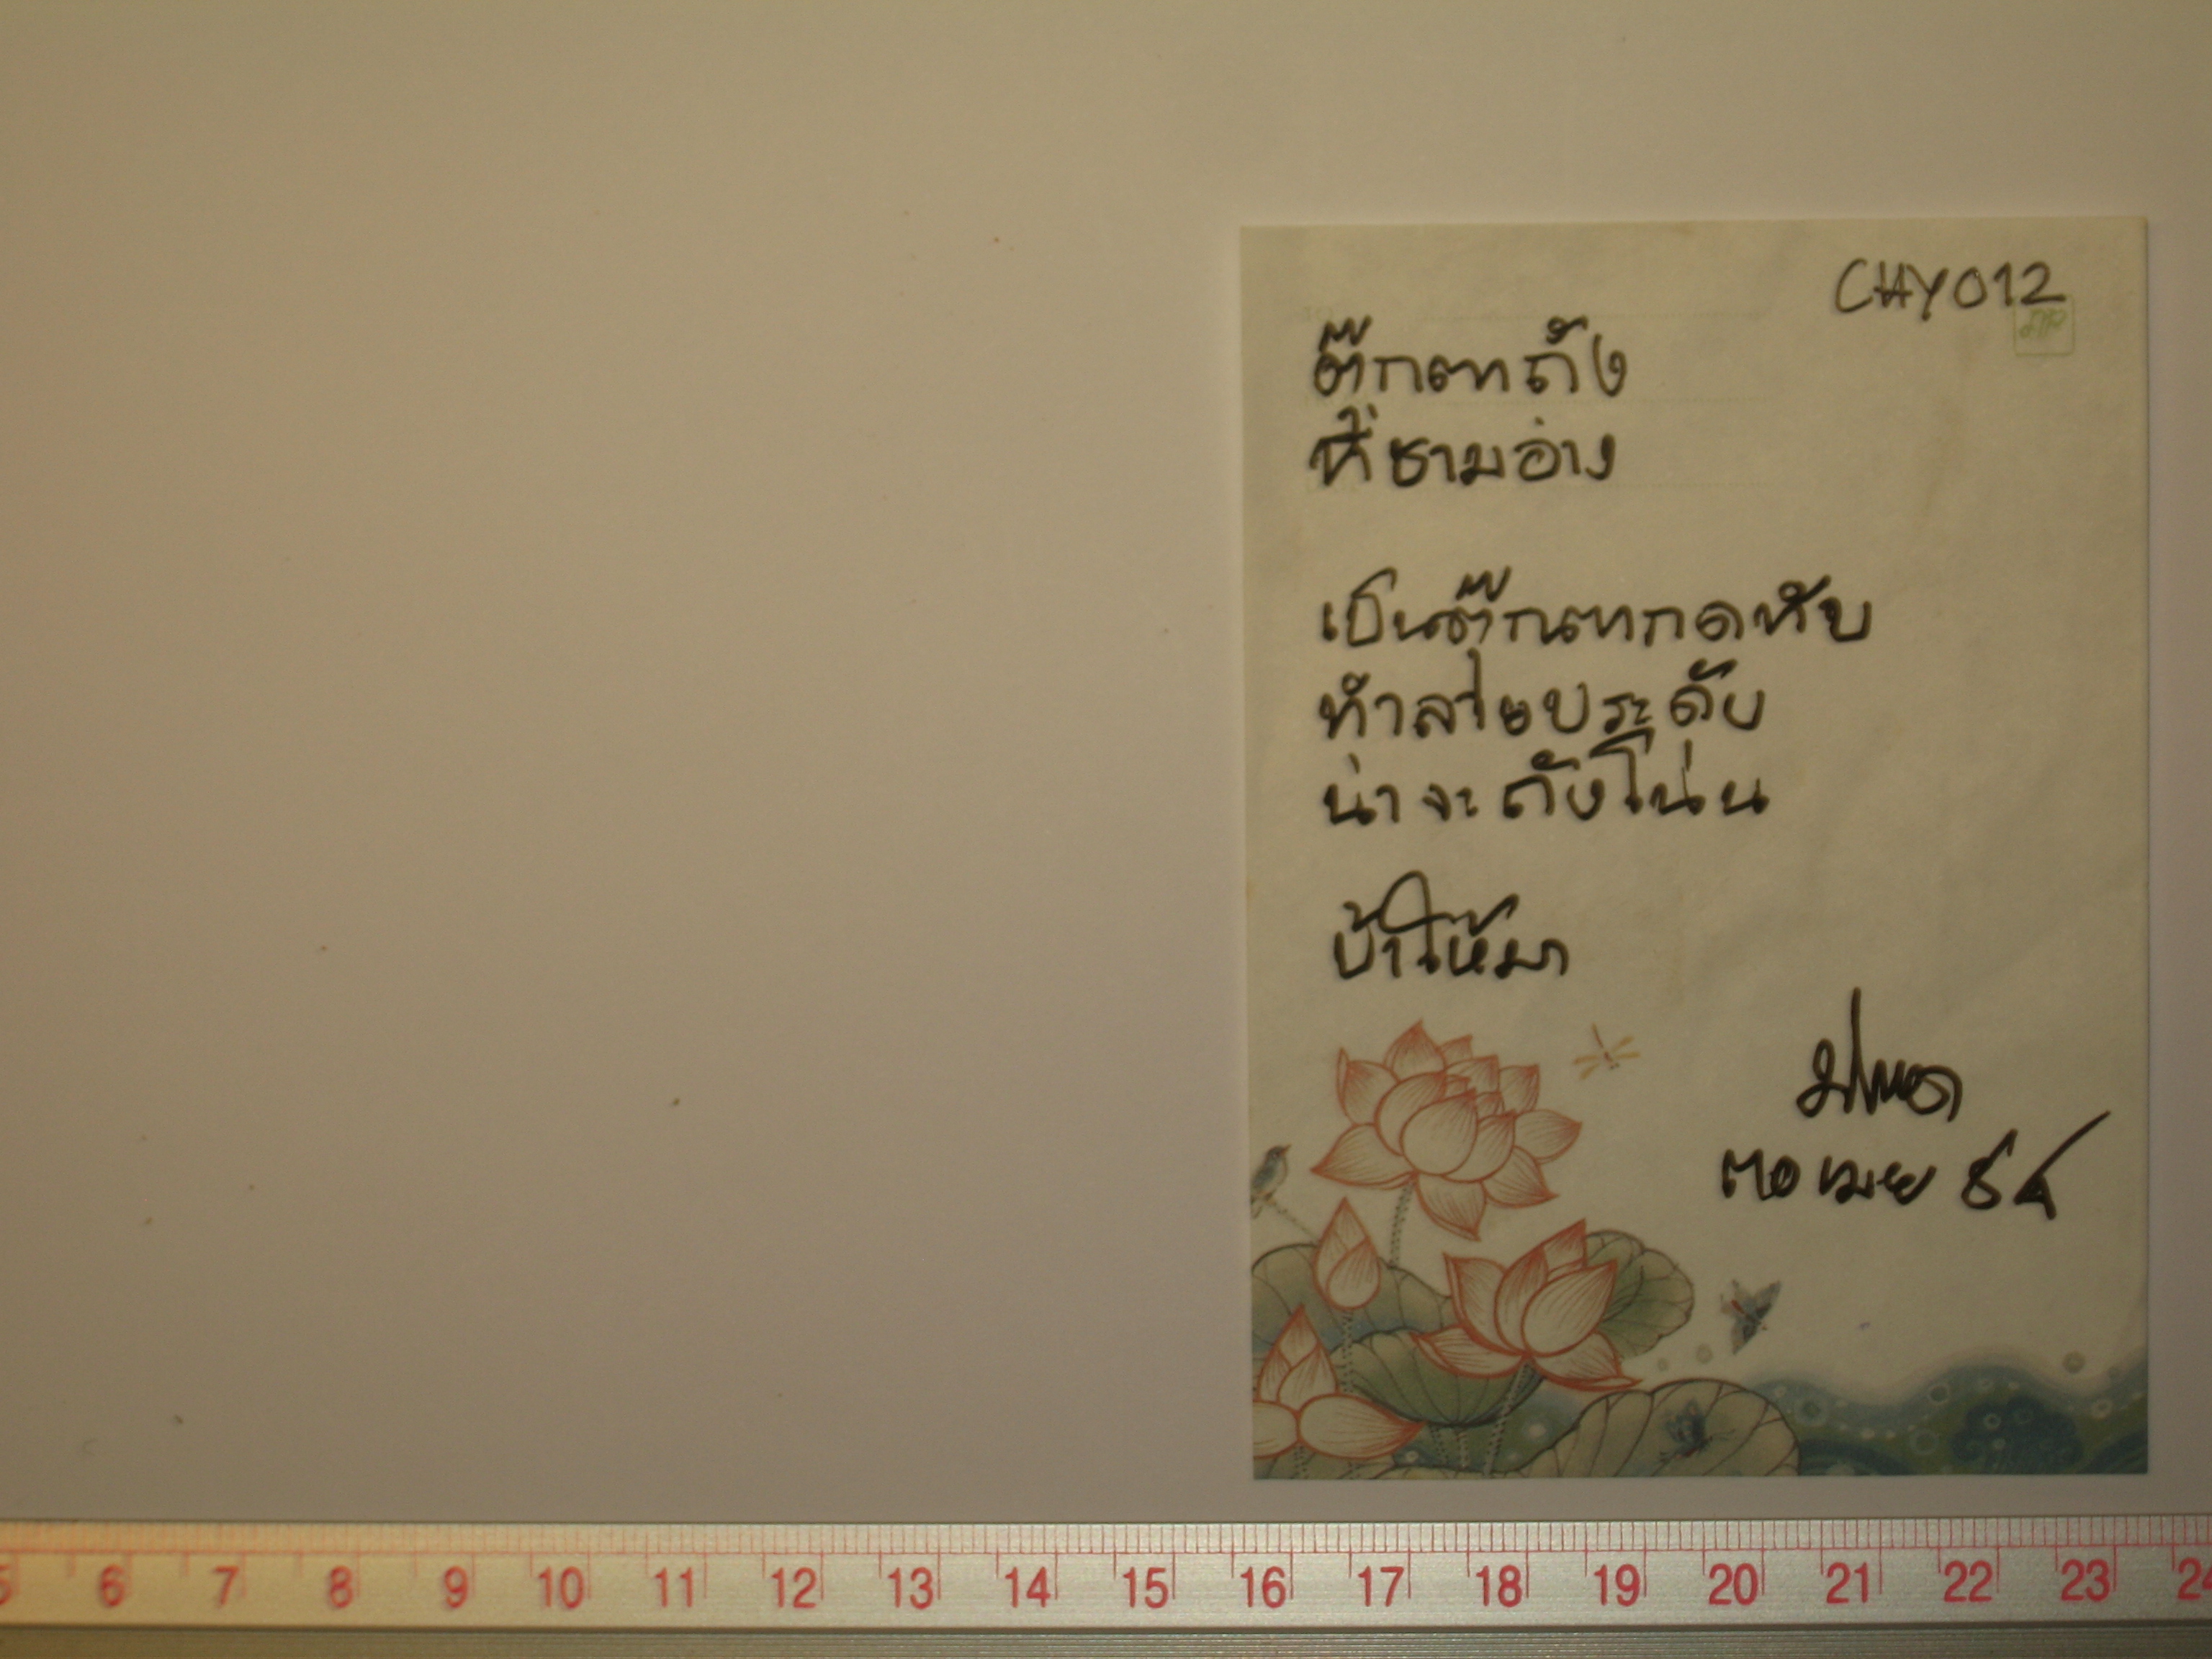 CHY012
ตุ๊กตาถ้ง
ที่ชามอ่าง
เป็นตุ๊กตากดทับ
ทำลายประดับ
น่าจะถังโน่น
ป้าให้มา
เมย
5 6 7 8 9 10 11 12 13 14 15 16 17 18 19 20 21 22 23 24